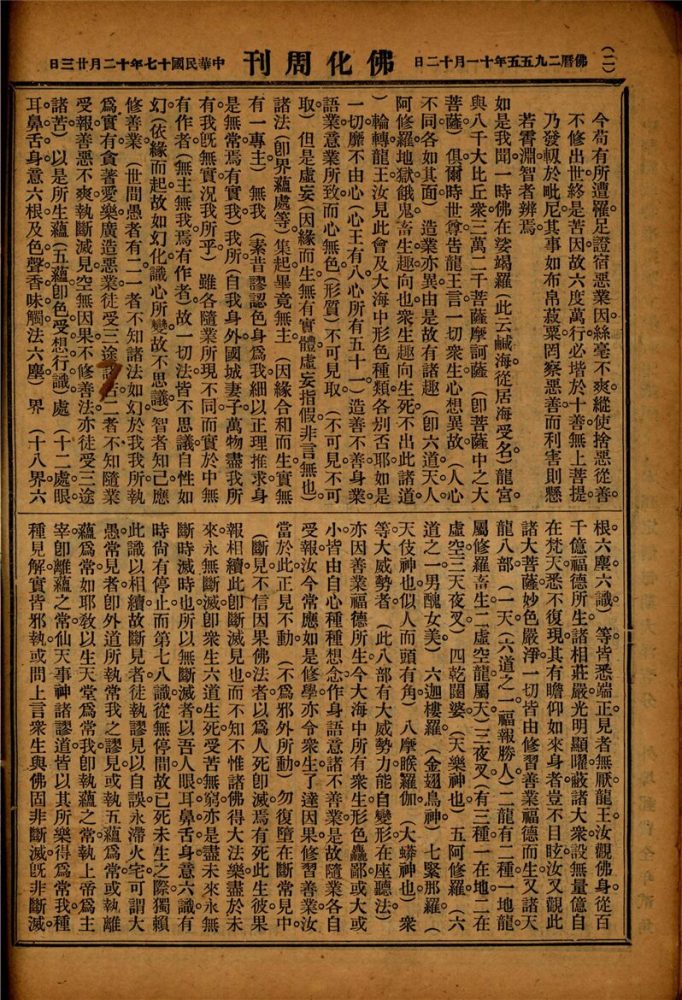 （二）
佛曆二九五五年十一月十二日
佛化周刊
中華民國十七年十二月廿三日
今苟有所遭罹。足證宿惡業因。絲毫不爽。縱使捨惡從善。
不修出世。終是苦因。故六度萬行。必堦於十善。無上菩提。
乃發軔於毗尼。其事如布帛菽粟。罔察惡善。而利害則懸
若霄淵。智者辨焉。
如是我聞。一時佛在娑竭羅（此云鹹海從居海受名）龍宮。
與八千大比丘衆三萬二千菩薩摩訶薩（卽菩薩中之大
菩薩）俱。爾時世尊告龍王言。一切衆生。心想異故。（人心
不同各如其面）造業亦異。由是故有諸趣（卽六道天人
阿修羅地獄餓鬼畜生趣向也衆生趣向生死不出此諸道
）輪轉。龍王汝見此會及大海中形色種類各別否耶。如是
一切靡不由心（心王有八心所有五十一）造善不善身業
語業意業所致。而心無色（形質）不可見取（不可見不可
取）但是虛妄（因緣而生無有實體虛妄指假非言無也）
諸法（卽界蘊處等）集起。畢竟無主（因緣合和而生實無
有一專主）無我（素昔謬認色身爲我細以正理推求身
是無常焉有實我）我所（自我身外國城妻子萬物盡我所
有我旣無實況我所乎）雖各隨業所現不同。而實於中無
有作者（無主無我焉有作者）故一切法皆不思議。自性如
幻（依緣而起故如幻化識心所變故不思議）智者知已。應
修善業（世間愚者有二一者不知諸法如幻於我我所執
爲實有貪著愛樂廣造惡業徒受三途諸苦二者不知隨業
受報善惡不爽執斷滅見空無因果不修善法亦徒受三途
諸苦）以是所生蘊（五蘊卽色受想行識）處（十二處眼
耳鼻舌身意六根及色聲香味觸法六塵）界（十八界六
根六塵六識）等。皆悉端正。見者無厭。龍王汝觀佛身。從百
千億福德所生。諸相莊嚴。光明顯曜。蔽諸大衆。設無量億自
在梵天。悉不復現。其有瞻仰如來身者。豈不目眩。汝又觀此
諸大菩薩。妙色嚴淨。一切皆由修習善業福德而生。又諸天
龍八部（一天（六道之一福報勝人）二龍有二種一地龍
屬修羅畜生二虛空龍屬天）三夜叉（有三種一在地二在
虛空三天夜叉）四乾闥婆（天樂神也）五阿修羅（六
道之一男醜女美）六迦樓羅（金翅鳥神）七緊那羅（
天伎神也似人而頭有角）八摩睺羅伽（大蟒神也）衆
等大威勢者（此八部有大威勢力能自變形在座聽法）
亦因善業福德所生。今大海中所有衆生。形色麤鄙或大或
小。皆由自心種種想念。作身語意諸不善業。是故隨業各自
受報。汝今常應如是修學。亦令衆生了達因果。修習善業。汝
當於此正見不動（不爲邪外所動）勿復墮在斷常見中。
（斷見不信因果佛法者以爲人死卽滅焉有死此生彼果
報相續此卽斷滅見也而不知不惟諸佛得大法樂盡於未
來永無斷滅卽衆生六道生死受苦無窮亦是盡未來永無
斷時滅時也所以無斷滅者以吾人眼耳鼻舌身意六識有
時尙有停止而第七八識從無停間故已死未生之際獨賴
此識以相續故斷見者徒執謬見以自誤永滯火宅可謂大
愚常見者卽外道所執常我之謬見或執五蘊爲常或執離
蘊爲常如耶敎以生天堂爲常我卽執蘊之常執上帝爲主
宰卽離蘊之常仙天事神諸謬道皆以其所樂得爲常我種
種見解實皆邪執或問上言衆生與佛固非斷滅旣非斷滅